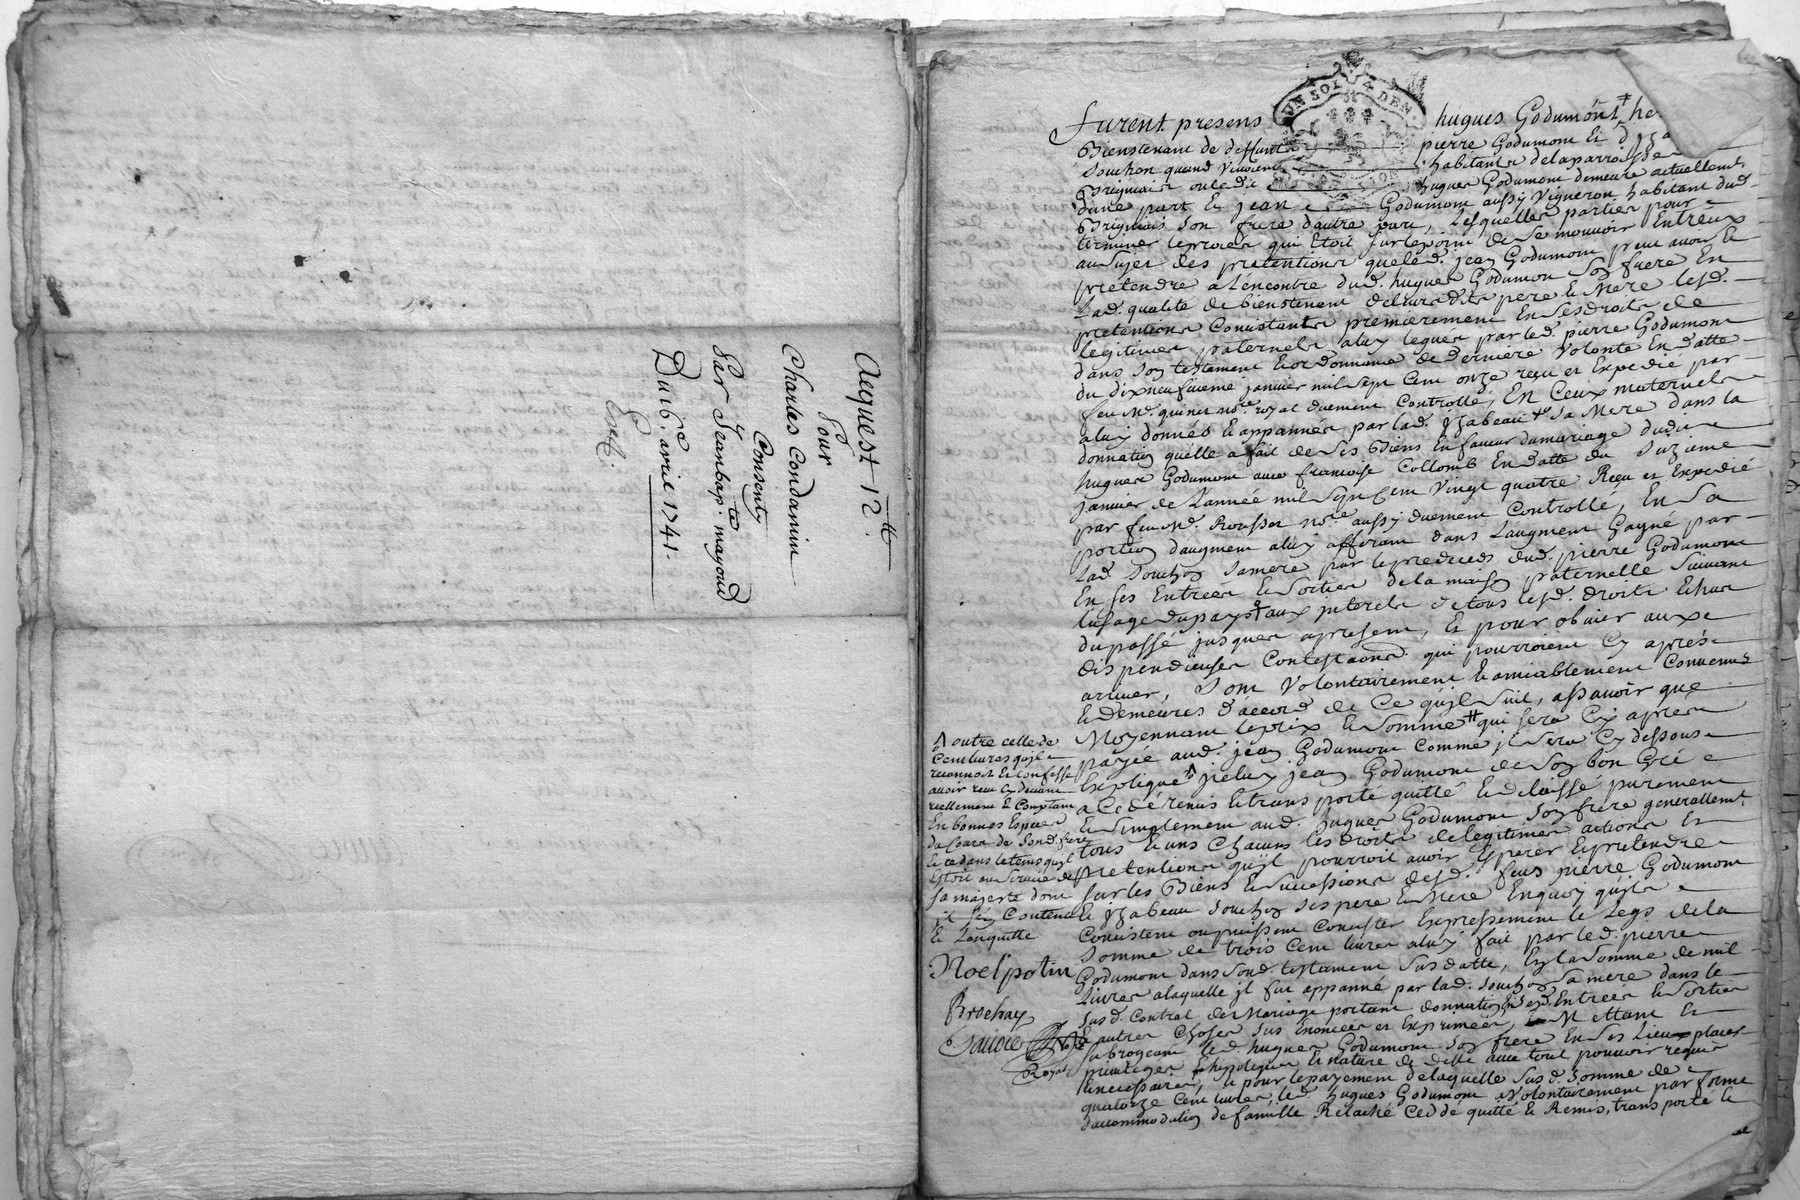 Acquest 12 ₶.
Pour
Charles Condamin
Consenty
Par Jeanbap.te mayoud
Du 16.e avril 1741.
UN SOL 4 DEN
furent presens hugues Godumont
Bienstenant de deffunt pierre Godumont Et
Souchon quand vivoient habitants de la parroisse
Brignais ou ledit hugues Godumont demeure actuellement
dune part Et jean Godumont aussy vigneron habitant dud.
Brignais son frere dautre part, Lesquelles parties pour
terminer le proces qui Etoit sur le point de se mouvoir Entreux
au sujet des pretentions que led. jean Godumont peut avoir Et
pretendre a lencontre dud. hugues Godumont son frere En
Lad. qualité de bienstenant de leursdits pere Et Mere lesd.
pretentions Consistantes premierement En ses droits de
legitimes paternels a luy legués par led. pierre Godumont
dans son testament Et ordonnance de derniere volonté En datte
du dixneufvieme janvier mil sept Cent onze reçu et Expedié par
feu M.e quinet no.re royal duement Controllé, En Ceux maternels
a luy donnés Et appannés par lad. Yzabeau sa Mere dans la
donnation quelle a fait de ses Biens En faveur du mariage dudit
hugues Godumont avec francoise Collomb En datte du sixieme
janvier de L'année mil sept Cent vingt quatre Reçu et Expedié
par feu M.e Rousset no.re aussy duement Controllé, En sa
portion daugment a luy afferant dans Laugment Gagné par
Lad. Souchon sa mere par le predeces dud. pierre Godumont
En ses Entrées Et sorties de la maison paternelle suivant
lusage du pays Et aux interets de tous lesd. droits Echus
du passé jusques apresent, Et pour obvier aux
dispendieuses Contestaons qui pourroient Cy après
arriver, sont volontairement Et amiablement Convenus
Et demeurés daccord de Ce quil suit, assavoir que
Moyennant le prix Et somme qui sera Cy apres
payée aud. jean Godumont comme jl sera Cy dessous
Expliqué jceluy jean Godumont de son bon Gré
a Cedé remis Et transporté quitté Et delaissé purement
Et simplement aud. hugues Godumont son frere generallement
tous Et uns Chacuns les droits de legitimes actions Et
pretentions quil pourroit avoir Esperer Et pretendre
sur les Biens Et successions desd. feus pierre Godumont
Et Yzabeau Souchon ses pere Et Mere En quoy quils
Consistent ou puissent Consister Expressement le Legs de la
somme de trois Cent livres a luy fait par led. pierre
Godumont dans sond. testament susdatte, En la somme de mil
Livres a laquelle jl fut appanné par lad. Souchon sa mere dans le
susd. Contrat de Mariage portant donnation En sesd. Entrées Et sorties
Et autres Choses sus Enoncées et Exprimées, Mettant Et
subrogeant led. hugues Godumont son frere En ses Lieux places
privileges Et hipoteques Et nature de dette avec tout pouvoir requis
Et necessaire, Et pour le payement de laquelle susd. somme de
quatorze Cent livres, led. hugues Godumont a volontairement par forme
daccommodation de famille Relaché Ceddé quitté Et Remis, transporté Et
outre celle de
Cent livres quil
reconnoit Et Confesse
avoir recu Cy devant
reellement Et Comptant
En bonnes Especes
du Cours de sond. frere
Et ce dans le tems quil
Estoit au service de
sa majesté dont
jl sen Contente
Et Lenquitte
Noel potin
Brochay